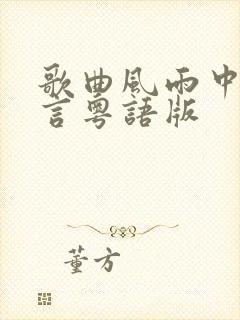 歌曲風雨中
言粵語版
董方